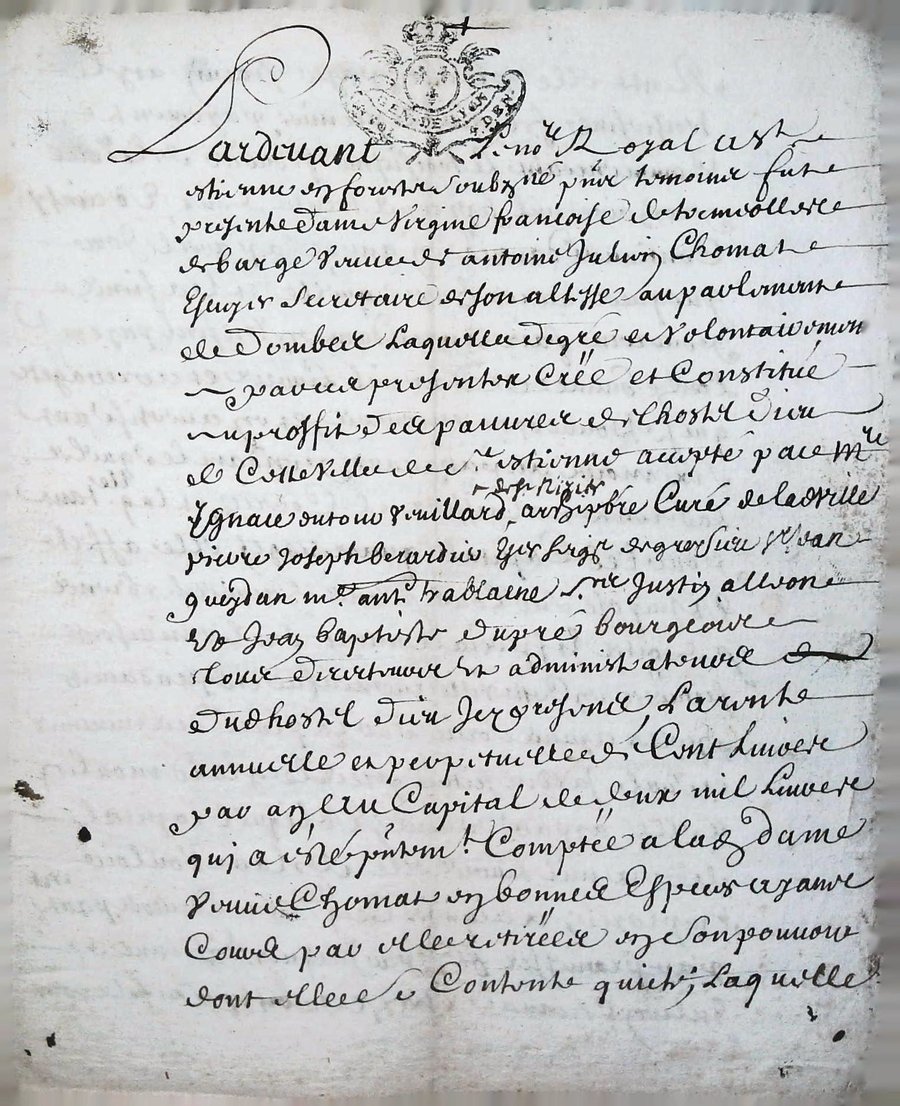 GEN. DE LYON
Pardevant Le no.re Royal a St
estienne en forests soubz.né puis temoins fut
presente Dame Virgine francoise de
de barge veuve de antoine Julien Chomat
Escuyer Secretaire de son altesse au parlement
de Dombes Laquelle de gré et volontairement
par ces presentes Créé et Constitué
au proffit des pauvres de lhostel Dieu
de Cette ville de S.t estienne accepté par m.re
Ignace antoine Veuillard, archipbre Curé de lad ville
de St Nizier
pierre Joseph Berardier Escuyer seigr de Jean
gueydan m.e ant. trablaine S.r Justin alleon
et Jean baptiste dupré bourgeois
tous Directeurs et administrateurs
Dud hostel Dieu Icy presents, La rente
annuelle et perpetuelle de Cent Livres
par an au Capital de deux mil Livres
qui a esté pñtem.t Comptée a lad Dame
Veuve Chomat en bonnes Especes ayant
Cours par elle retirées en son pouvoir
dont elle se Contente quitte, Laquelle